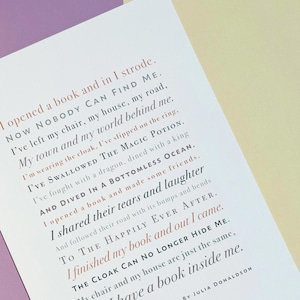 I opened a book and in I strode.
NOW NOBODY CAN FIND ME.
I've left my chair, my house, my road,
My town and my world behind me.
I'm wearing the cloak, I've slipped on the ring,
I'VE SWALLOWED THE MAGIC POTION.
I've fought with a dragon, dined with a king
AND DIVED IN A BOTTOMLESS OCEAN.
I opened a book and made some friends.
I shared their tears and laughter
And followed their road with its bumps and bends
TO THE HAPPILY EVER AFTER.
I finished my book and out I came.
THE CLOAK CAN NO LONGER HIDE ME.
My chair and my house are just the same,
I have a book inside me.
BY JULIA DONALDSON